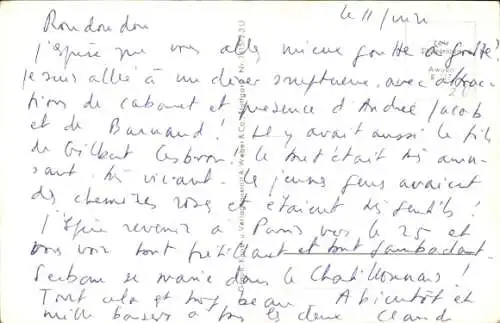 Rondoudou
le 11 juin
J'espère que vous allez mieux goutte à goutte!
Je suis allé à un dîner somptueux avec attrac
tions de cabaret et présence d'André Jacob
et de Barnaud! Il y avait aussi le fils
de Gilbert Cesbron! le tout était très amu
sant très vivant. les jeunes gens avaient
des chemises roses et étaient très gentils!
J'espère revenir à Paris vers le 25 et
vous voir tout pétillant et tout gambadant.
se marie dans le Chatillonnais!
Tout cela est trop beau A bientôt et
mille baisers à tous les deux Claud